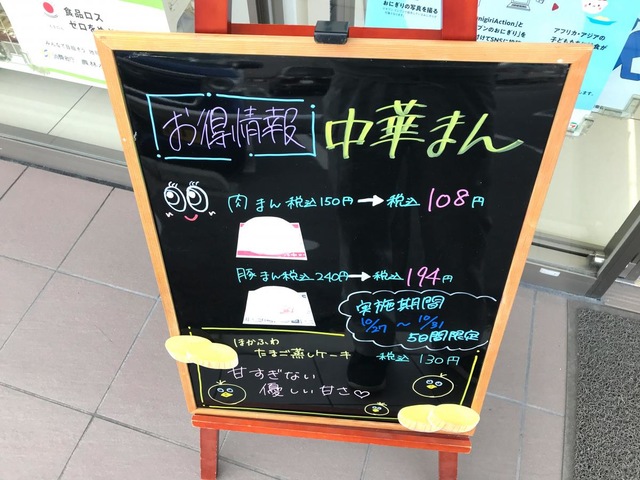 食品ロス
ゼロを
おにぎりの写真を撮る
アフリカ・アジアの
お得情報
中華まん
肉まん 税込150円→税込108円
豚まん税込240円→税込194円
実施期間
10/27 ~ 10/31
5日間限定
ほかふわ
たまご蒸しケーキ 税込130円
甘すぎない
優しい甘さ♡